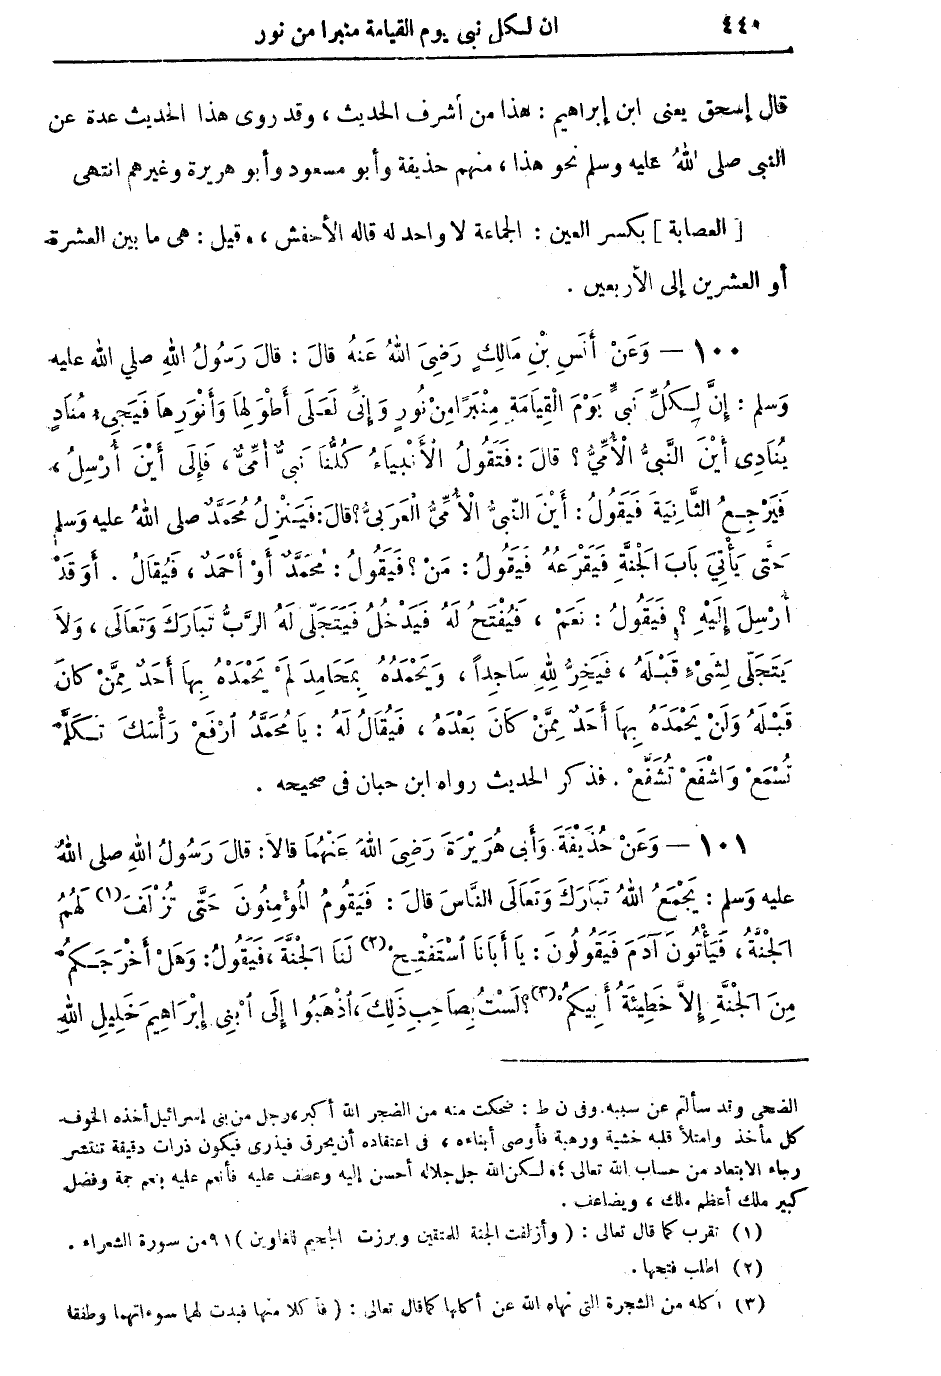 ٤٤٠ ان لكل نبى يوم القيامة منبرا من نور
قال إسحق يعنى ابن إبراهيم : هذا من أشرف الحديث ، وقد روى هذا الحديث عدة عن
النبى صلى اللهُ عليه وسلم نحو هذا ، منهم حذيفة وأبو مسعود وأبو هريرة وغيرهم انتهى
[ العصابة ] بكسر العين : الجماعة لا واحد له قاله الأخفش ، وقيل : هى ما بين العشرة
أو العشرين إلى الأربعين .
١٠٠ — وَعَنْ أَنَسِ بْنِ مَالِكٍ رَضِىَ اللهُ عَنهُ قالَ : قالَ رَسُولُ اللهِ صلي الله عليه
وَسلم : إِنَّ لِكُلِّ نَبىٍّ يَوْمَ الْقِيَامَةِ مِنْبَرًا مِنْ نُورٍ وَإِنِّى لَعَلَى أَطْوَلِهَا وَأَنْوَرِهَا فَيَجِىءُ مُنَادٍ
يُنَادِى أَيْنَ النَّبىُّ الْأُمِّىُّ ؟ قالَ : فَتَقُولُ الْأَنْبِيَاءُ كُلُّنَا نَبىٌّ أُمِّىٌّ ، فَإِلَى أَيْنَ أُرْسِلُ ،
فَيَرْجِعُ الثَّانِيَةَ فَيَقُولُ : أَيْنَ النَّبىُّ الْأُمِّىُّ الْعَرَبىُّ ؟ قالَ : فَيَنْزِلُ مُحَمَّدٌ صلى اللهُ عليه وَسلم
حَتَّى يَأْتِىَ بَابَ الْجَنَّةِ فَيَقْرَعُهُ فَيَقُولُ : مَنْ ؟ فَيَقُولُ : مُحَمَّدٌ أَوْ أَحْمَدُ ، فَيُقَالُ . أَوَقَدْ
أُرْسِلَ إِلَيْهِ ؟ فَيَقُولُ : نَعَمْ ، فَيُفْتَحُ لَهُ فَيَدْخُلُ فَيَتَجَلَّى لَهُ الرَّبُّ تَبَارَكَ وَتَعَالَى ، وَلاَ
يَتَجَلَّى لِشَىْءٍ قَبْلَهُ ، فَيَخِرُّ لِلهِ سَاجِداً ، وَيَحْمَدُهُ بِمَحَامِدَ لَمْ يَحْمَدْهُ بِهَا أَحَدٌ مِمَّنْ كانَ
قَبْلَهُ وَلَنْ يَحْمَدَهُ بِهَا أَحَدٌ مِمَّنْ كَانَ بَعْدَهُ ، فَيُقَالُ لَهُ : يَا مُحَمَّدُ ارْفَعْ رَأْسَكَ تَكَلَّمْ
تُسْمَعْ وَاشْفَعْ تُشَفَّعْ . فذكر الحديث رواه ابن حبان فى صحيحه .
١٠١ — وَعَنْ حُذَيْفَةَ وَأَبى هُرَيْرَةَ رَضِىَ اللهُ عَنْهُمَا قالاَ : قالَ رَسُولُ اللهِ صلى اللهُ
عليه وَسلم : يَجْمَعُ اللهُ تَبَارَكَ وَتَعَالَى النَّاسَ قالَ : فَيَقُومُ الْمُؤْمِنُونَ حَتَّى تُزْلَفَ (١) لَهُمُ
الْجَنَّةُ ، فَيَأْتُونَ آدَمَ فَيَقُولُونَ : يَا أَبَانَا اسْتَفْتِحْ (٢) لَنَا الْجَنَّةَ ، فَيَقُولُ : وَهَلْ أَخْرَجَكُمْ
مِنَ الْجَنَّةِ إِلاَّ خَطِيئَةُ أَبِيكُمْ (٣) ؟ لَسْتُ بِصَاحِبِ ذَلِكَ ، اذْهَبُوا إِلَى ابْنِى إِبْرَاهِيمَ خَلِيلِ اللهِ
الضحى وقد سألتم عن سببه . وفى ن ط : ضحكت منه من الضجر الله أكبر ، رجل من بنى إسرائيل أخذه الخوف
كل مأخذ وامتلأ قلبه خشية ورهبة فأوصى أبناءه ، فى اعتقاده أن يحرق فيذرى فيكون ذرات دقيقة تنتشر
رجاء الابتعاد من حساب الله تعالى ؛ ولكن الله جل جلاله أحسن إليه وعطف عليه فأنعم عليه بنعم جمة وفضل
كبير ملك أعظم ملك ، ويضاعف .
(١) تقرب كما قال تعالى : ( وأزلفت الجنة للمتقين وبرزت الجحيم للغاوين ) ٩١ من سورة الشعراء .
(٢) اطلب فتحها .
(٣) أكله من الشجرة التى نهاه الله عن أكلها كما قال تعالى : ( فأكلا منها فبدت لهما سوءاتهما وطفقا